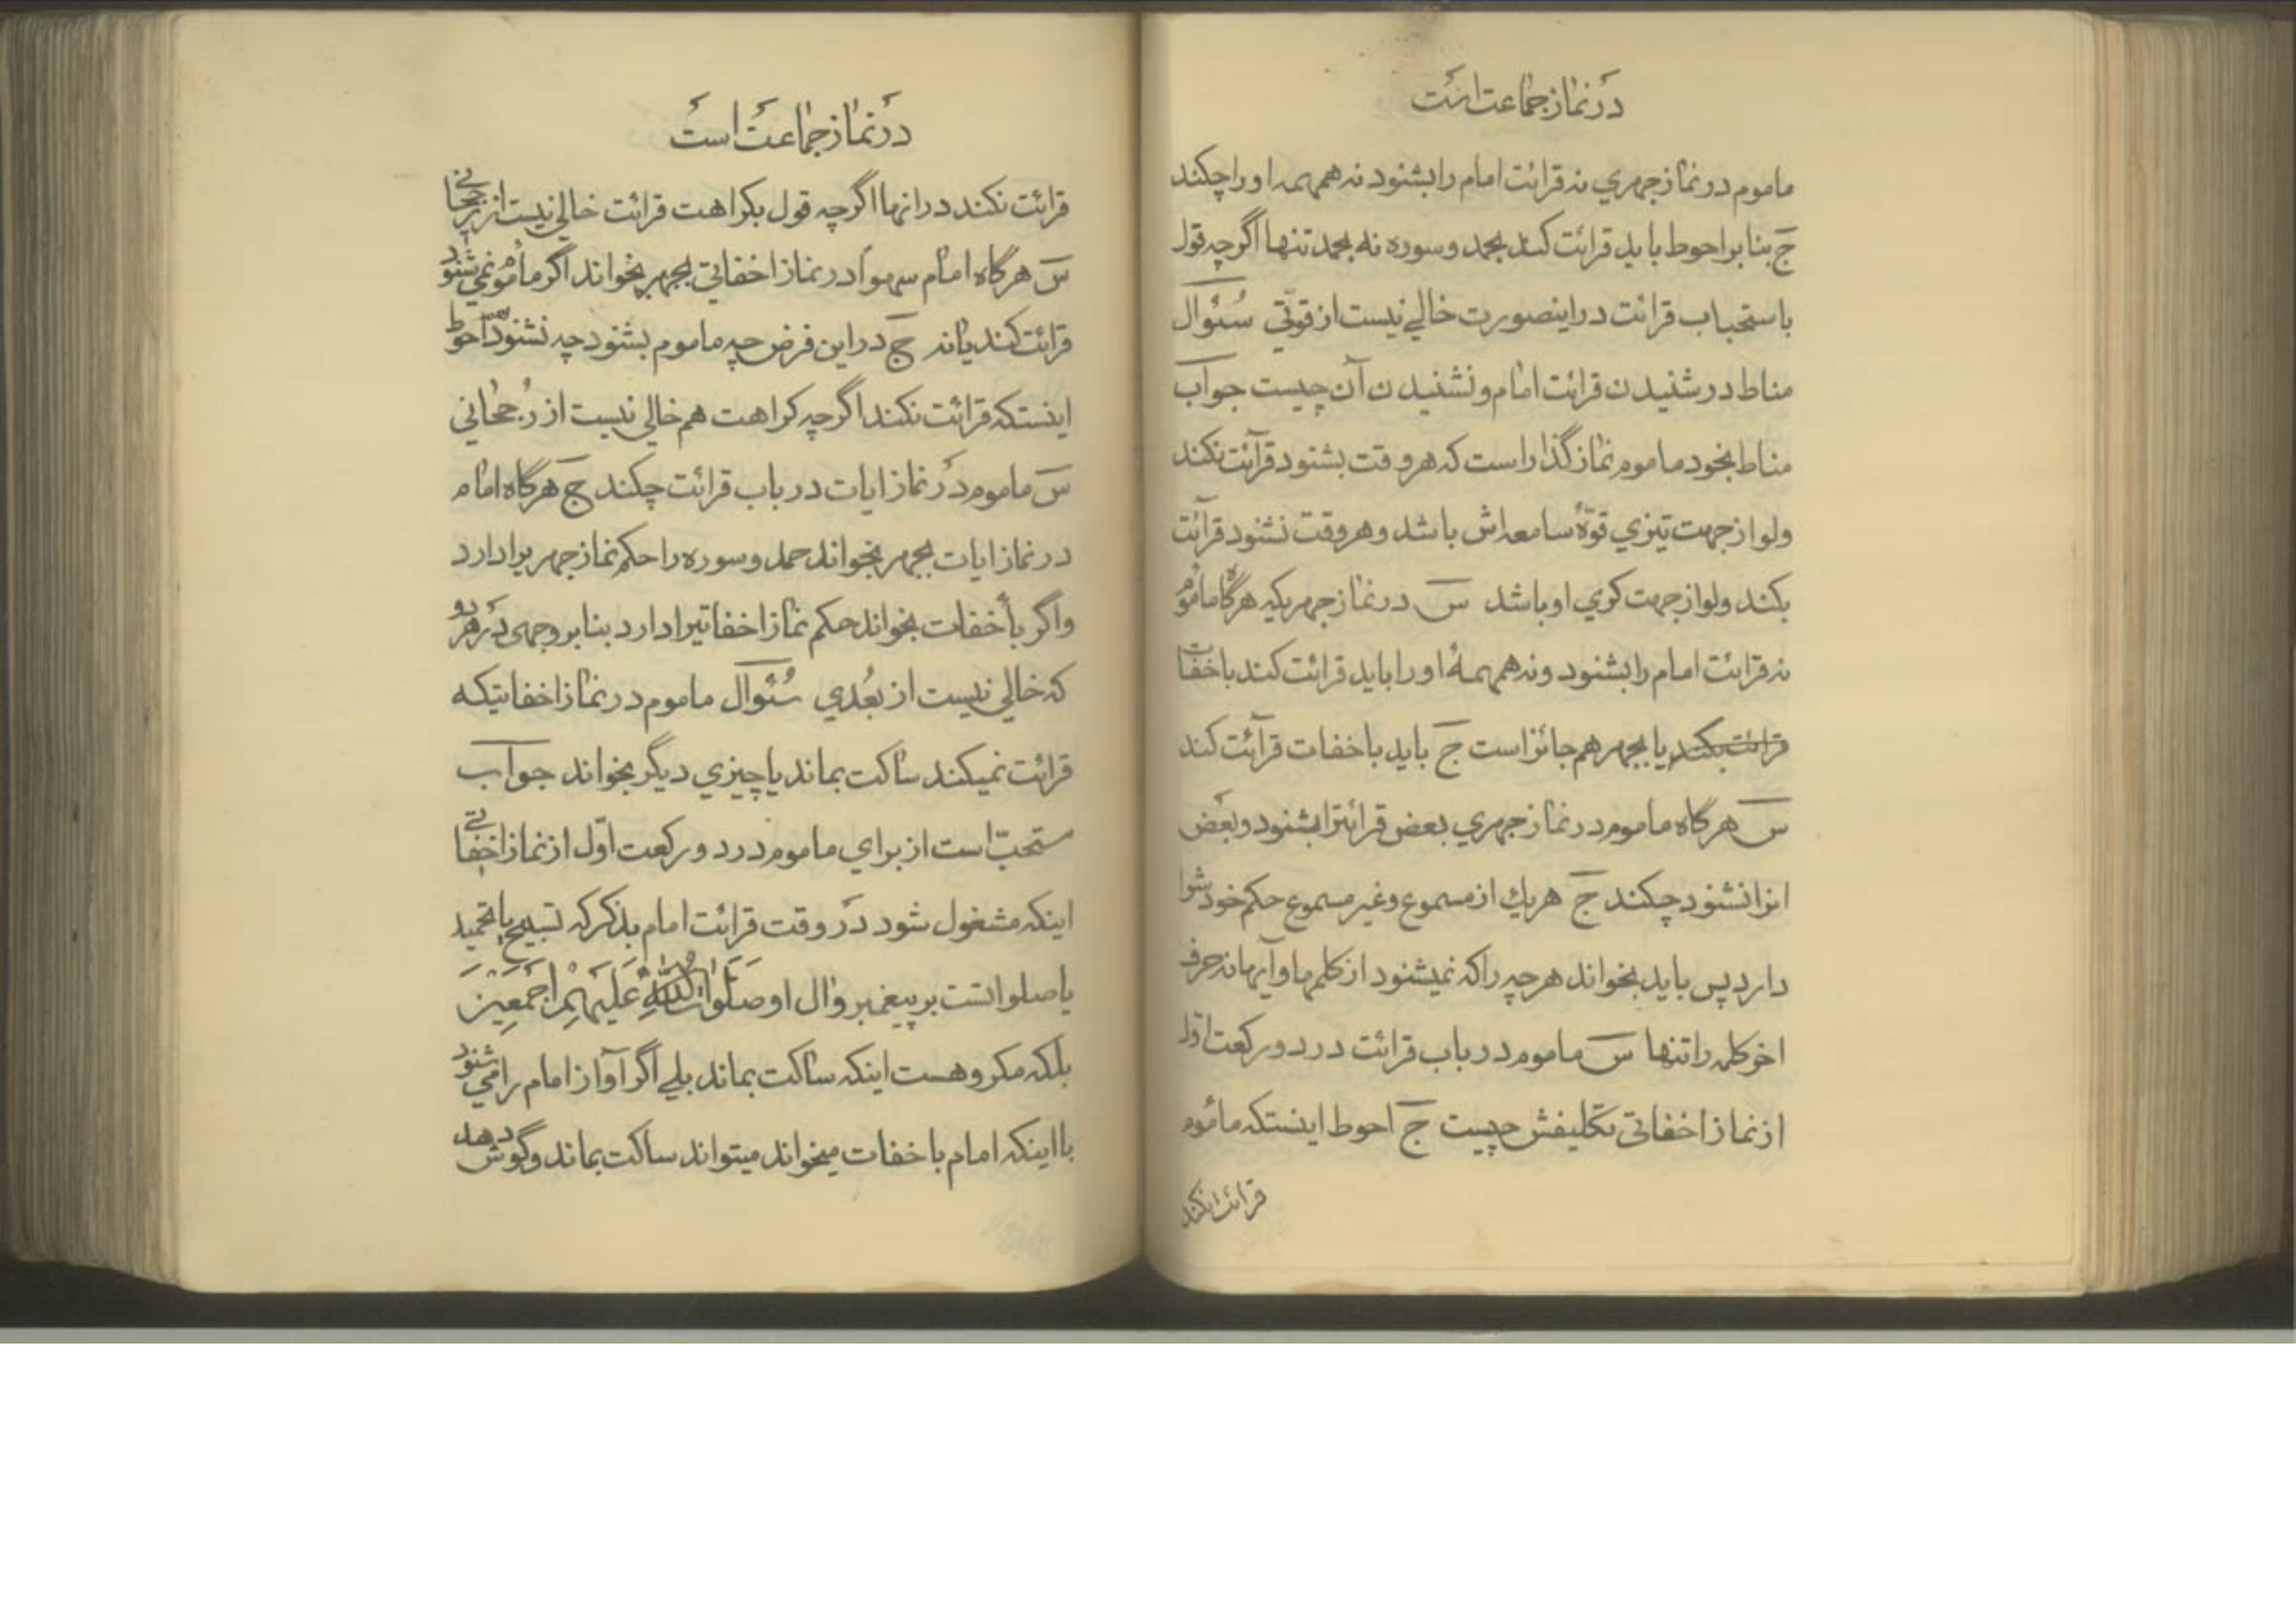 در نماز جماعت است
ماموم در نماز جهري نه قرائت امام را بشنود نه همهمه او را چکند
ج بنا بر احوط باید قرائت کند بحمد و سوره نه بحمد تنها اگر چه قول
باستحباب قرائت در اینصورت خالي نیست از قوّتي سُئوال
مناط در شنیدن قرائت امام و نشنیدن آن چیست جواب
مناط بخود ماموم نماز گذار است که هر وقت بشنود قرآئت نکند
ولو از جهت تیزي قوّهٔ سامعه اش باشد و هر وقت نشنود قرآئت
بکند ولو از جهت کري او باشد س در نماز جهریکه هرگاه ماموم
نه قرائت امام را بشنود و نه همهمهٔ او را باید قرائت کند باخفات
قرائت بکند یا بجهر هم جائز است ج باید باخفات قرآئت کند
س هرگاه ماموم در نماز جهري بعض قرائترا بشنود و بعض
انرا نشنود چکند ج هریك از مسموع و غیر مسموع حکم خودشرا
دارد پس باید بخواند هر چه را که نمیشنود از کلمها و آیها نه حرف
اخر کلمه را تنها س ماموم در باب قرائت در دو رکعت اوّل
از نماز اخفاتي تکلیفش چیست ج احوط اینستکه مأموم
قرائت نکند
در نماز جماعت است
قرائت نکند در انها اگر چه قول بکراهت قرائت خالي نیست از رجحاني
س هرگاه امام سهواً در نماز اخفاتي بجهر بخواند اگر ماموم نمي شنود
قرائت کند یا نه ج در این فرض چه ماموم بشنود چه نشنود احوط
اینستکه قرائت نکند اگر چه کراهت هم خالي نیست از رُجحاني
س ماموم در نماز ایات در باب قرائت چکند ج هرگاه امام
در نماز ایات بجهر بخواند حمد و سوره را حکم نماز جهریرا دارد
و اگر بأخفات بخواند حکم نماز اخفاتیرا دارد بنا بر وجهي در هر دو
که خالي نیست از بُعدي سُئوال ماموم در نماز اخفاتیکه
قرائت نمیکند ساکت بماند یا چیزي دیگر بخواند جواب
مستحبّ است از براي ماموم در دو رکعت اوّل از نماز اخفاتي
اینکه مشغول شود در وقت قرائت امام بذکر که تسبیح یا تحمید
یا صلواتست بر پیغمبر و ال او صَلَواتُ اللّهِ عَلَیهِم اَجمَعین
بلکه مکروهست اینکه ساکت بماند بلي اگر آواز امام را مي شنود
با اینکه امام باخفات میخواند میتواند ساکت بماند و گوش دهد